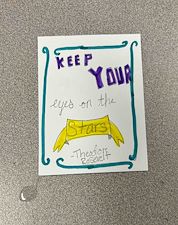 KEEP
YOUR
eyes on the
Stars
-Theodore